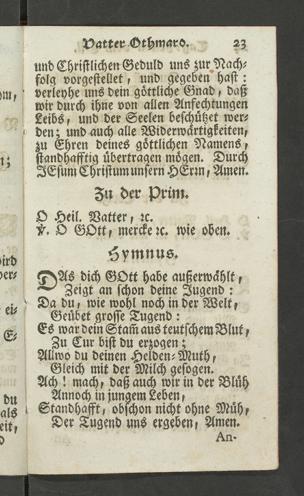 Vatter Othmaro. 23
und Christlichen Geduld uns zur Nach-
folg vorgestellet, und gegeben hast:
verleyhe uns dein göttliche Gnad, daß
wir durch ihne von allen Anfechtungen
Leibs, und der Seelen beschützet wer-
den; und auch alle Widerwärtigkeiten,
zu Ehren deines göttlichen Namens,
standhafftig übertragen mögen. Durch
JEsum Christum unsern HErrn, Amen.
Zu der Prim.
O Heil. Vatter, ꝛc.
℣. O GOtt, mercke ꝛc. wie oben.
Hymnus.
DAs dich GOtt habe außerwählt,
Zeigt an schon deine Jugend:
Da du, wie wohl noch in der Welt,
Geübet grosse Tugend:
Es war dein Stam̃ aus teutschem Blut,
Zu Cur bist du erzogen;
Allwo du deinen Helden-Muth,
Gleich mit der Milch gesogen.
Ach! mach, daß auch wir in der Blüh
Annoch in jungem Leben,
Standhafft, obschon nicht ohne Müh,
Der Tugend uns ergeben, Amen.
An-